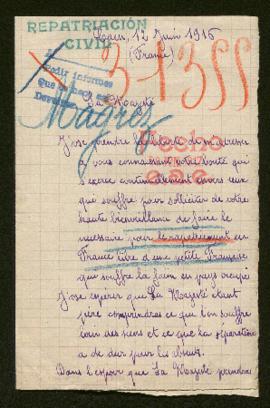 REPATRIACIÓN
CIVIL
Caen, 12 Juin 1916
(France)
31355
Pedir informes
Que se hace en
Sa Majesté
Magrez
Hecho
J'ose prendre la liberté de m'adresser
à vous connaissant votre bonté qui
s'exerce continuellement envers ceux
que souffre pour solliciter de votre
haute bienveillance de faire le
nécessaire pour le rapatriement en
France libre d'une petite Française
qui souffre la faim en pays occupé
J'ose espérer que Sa Majesté étant
père comprendrez ce que l'on souffre
loin des siens et ce que la séparation
a de dur pour les absents.
Dans l'espoir que Sa Majesté prendra